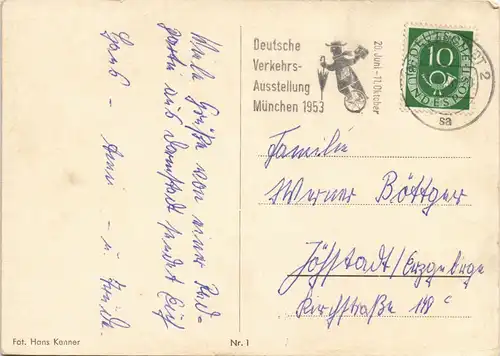 Viele Grüße von einer Rad-
partie aus Darmstadt sendet Euch
Hans - Anni - u.
Deutsche
Verkehrs-
Ausstellung
München 1953
20. Juni - 11. Oktober
10
DEUTSCHE BUNDESPOST
2
sa
Familie
Werner Böttger
Jöhstadt/Erzgebirge
Kirchstraße 118 c
Fot. Hans Kenner
Nr. 1